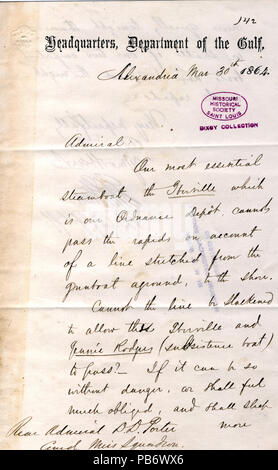 142
Headquarters, Department of the Gulf,
Alexandria Mar 30th 1864.
MISSOURI
HISTORICAL
SOCIETY
SAINT LOUIS
BIXBY COLLECTION
Admiral,
Our most essential
steamboat, the Iberville which
is our Ordnance Depôt cannot
pass the rapids on account
of a line stretched from the
gunboat aground, to the shore.
Cannot the line be slackened
to allow the Iberville and
Jennie Rodgers (subsistence boat)
to pass? If it can be so
without danger, we shall feel
much obliged, and shall stop
more
Rear Admiral D.D. Porter
Comd Miss Squadron
alamy
Image ID: PB6WX6
www.alamy.com